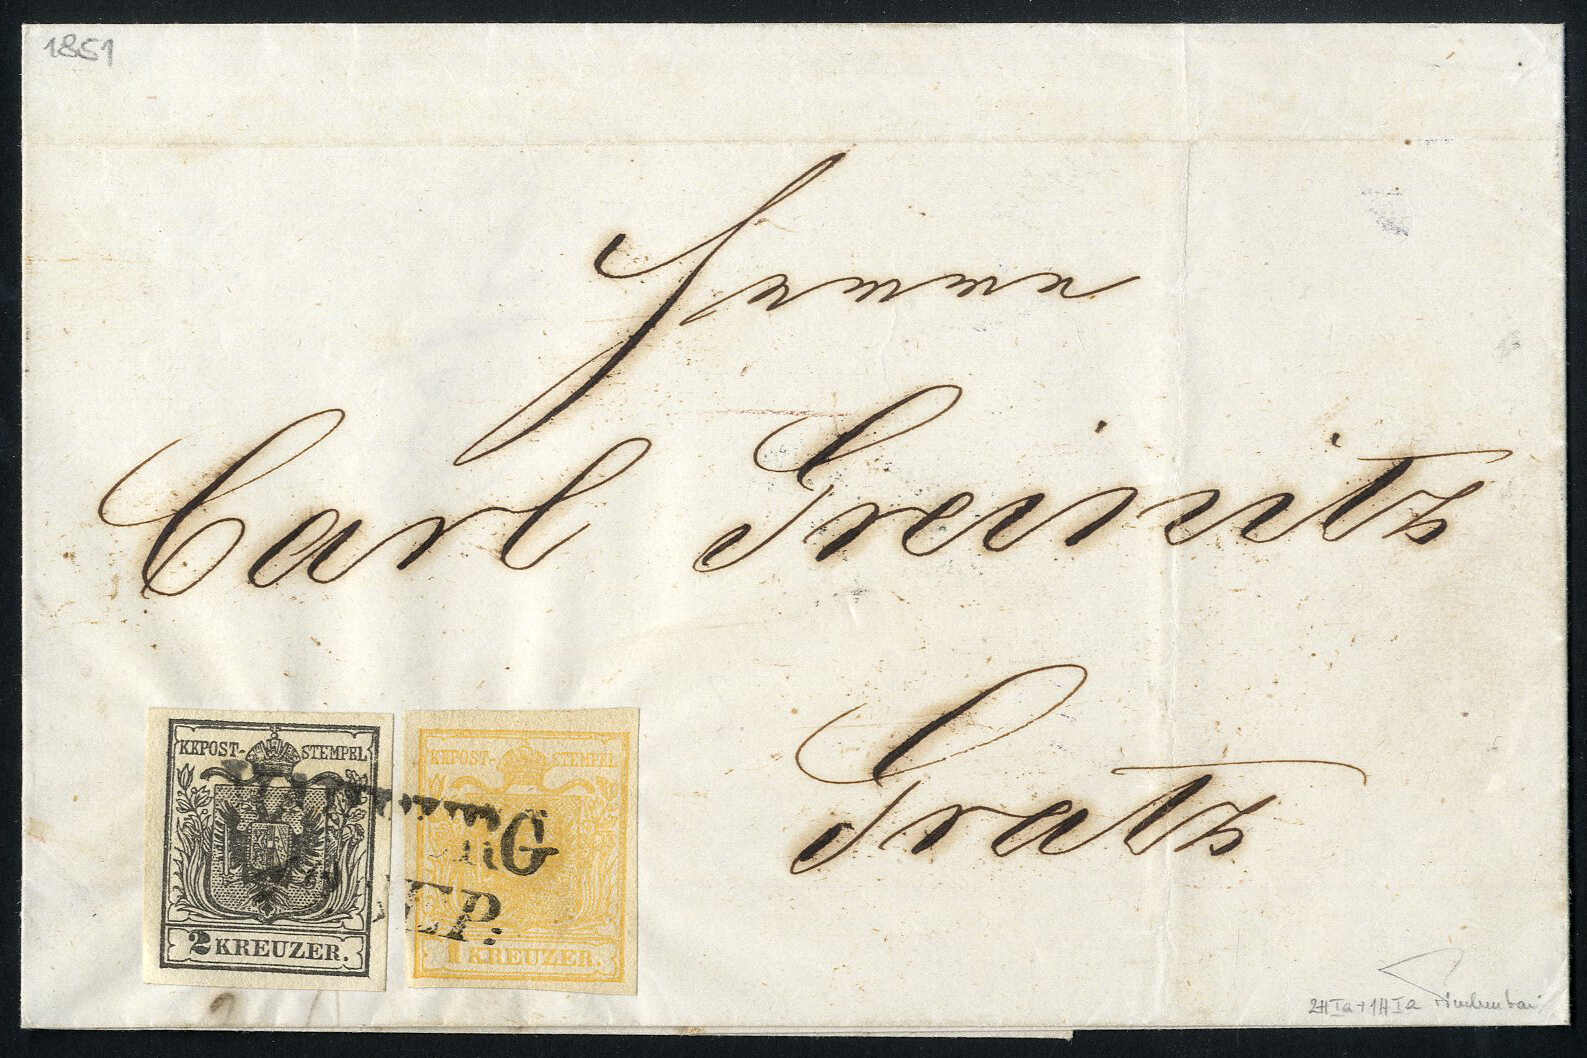 1851
Herrn
Carl Greinitz
Gratz
KKPOST-STEMPEL
2 KREUZER.
KKPOST-STEMPEL
1 KREUZER.
SEP:
2HIa+1HIa